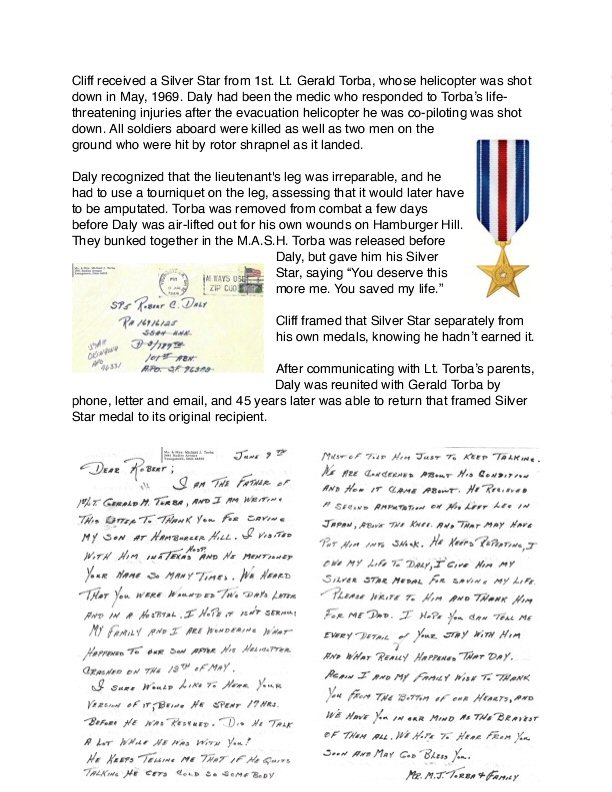 Cliff received a Silver Star from 1st. Lt. Gerald Torba, whose helicopter was shot
down in May, 1969. Daly had been the medic who responded to Torba’s life-
threatening injuries after the evacuation helicopter he was co-piloting was shot
down. All soldiers aboard were killed as well as two men on the
ground who were hit by rotor shrapnel as it landed.
Daly recognized that the lieutenant's leg was irreparable, and he
had to use a tourniquet on the leg, assessing that it would later have
to be amputated. Torba was removed from combat a few days
before Daly was air-lifted out for his own wounds on Hamburger Hill.
They bunked together in the M.A.S.H. Torba was released before
Daly, but gave him his Silver
Star, saying “You deserve this
more me. You saved my life.”
Cliff framed that Silver Star separately from
his own medals, knowing he hadn’t earned it.
After communicating with Lt. Torba’s parents,
Daly was reunited with Gerald Torba by
phone, letter and email, and 45 years later was able to return that framed Silver
Star medal to its original recipient.
Mr. & Mrs. Michael J. Torba
PM
ALWAYS USE
ZIP CODE
SP5 ROBERT C. DALY
RA 16916125
101ST ABN
Mr. & Mrs. Michael J. Torba
JUNE 9TH
DEAR ROBERT;
I AM THE FATHER OF
1ST/LT. GERALD M. TORBA, AND I AM WRITING
THIS LETTER TO THANK YOU FOR SAVING
MY SON AT HAMBURGER HILL. I VISITED
WITH HIM IN A TEXAS HOSP. AND HE MENTIONED
YOUR NAME SO MANY TIMES. WE HEARD
THAT YOU WERE WOUNDED TWO DAYS LATER
AND IN A HOSPITAL. I HOPE IT ISN'T SERIOUS
MY FAMILY AND I ARE WONDERING WHAT
HAPPENED TO OUR SON AFTER HIS HELICOPTER
CRASHED ON THE 18TH OF MAY.
I SURE WOULD LIKE TO HEAR YOUR
VERSION OF IT, BEING HE SPENT 17 HRS.
BEFORE HE WAS RESCUED. DID HE TALK
A LOT WHILE HE WAS WITH YOU?
HE KEEPS TELLING ME THAT IF HE QUITS
TALKING HE GETS COLD SO SOMEBODY
MUST OF TOLD HIM JUST TO KEEP TALKING.
WE ARE CONCERNED ABOUT HIS CONDITION
AND HOW IT CAME ABOUT. HE RECIEVED
A SECOND AMPUTATION ON HIS LEFT LEG IN
JAPAN, ABOVE THE KNEE. AND THAT MAY HAVE
PUT HIM INTO SHOCK. HE KEEPS REPEATING, I
OWE MY LIFE TO DALY, I GIVE HIM MY
SILVER STAR MEDAL FOR SAVING MY LIFE.
PLEASE WRITE TO HIM AND THANK HIM
FOR ME DAD. I HOPE YOU CAN TELL ME
EVERY DETAIL OF YOUR STAY WITH HIM
AND WHAT REALLY HAPPENED THAT DAY.
AGAIN I AND MY FAMILY WISH TO THANK
YOU FROM THE BOTTOM OF OUR HEARTS, AND
WE HAVE YOU IN OUR MIND AS THE BRAVEST
OF THEM ALL. WE HOPE TO HEAR FROM YOU
SOON AND MAY GOD BLESS YOU.
MR. M.J. TORBA & FAMILY